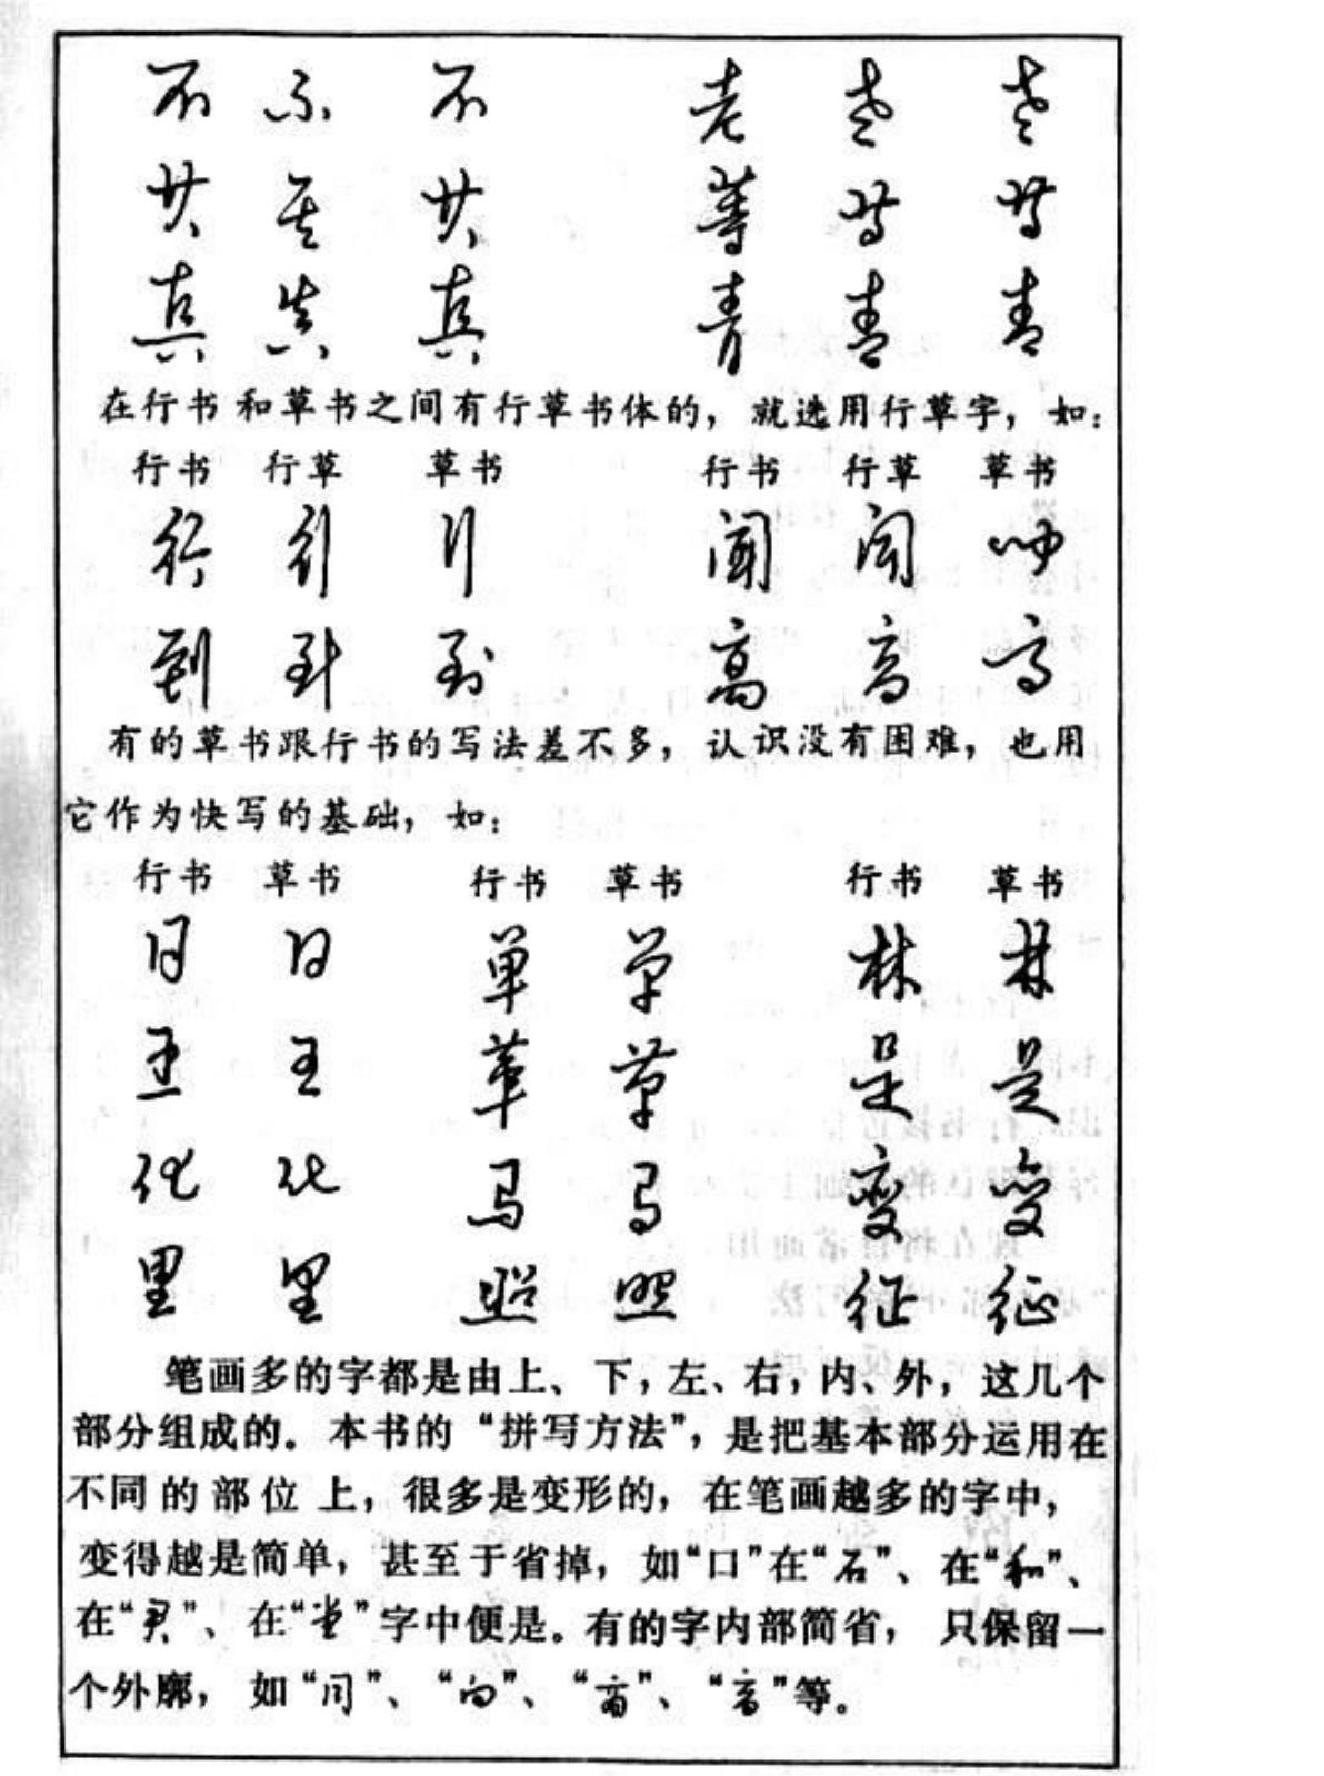 不 不 不 老 老 老
共 共 共 等 等 等
真 真 真 青 青 青
在行书和草书之间有行草书体的，就选用行草字，如：
行书 行草 草书 行书 行草 草书
行 行 行 闻 闻 闻
到 到 到 高 高 高
有的草书跟行书的写法差不多，认识没有困难，也用
它作为快写的基础，如：
行书 草书 行书 草书 行书 草书
日 日 单 单 林 林
王 王 草 草 是 是
化 化 马 马 变 变
里 里 照 照 征 征
笔画多的字都是由上、下，左、右，内、外，这几个
部分组成的。本书的“拼写方法”，是把基本部分运用在
不同的部位上，很多是变形的，在笔画越多的字中，
变得越是简单，甚至于省掉，如“口”在“石”、在“和”、
在“君”、在“堂”字中便是。有的字内部简省，只保留一
个外廓，如“同”、“向”、“”、“”等。